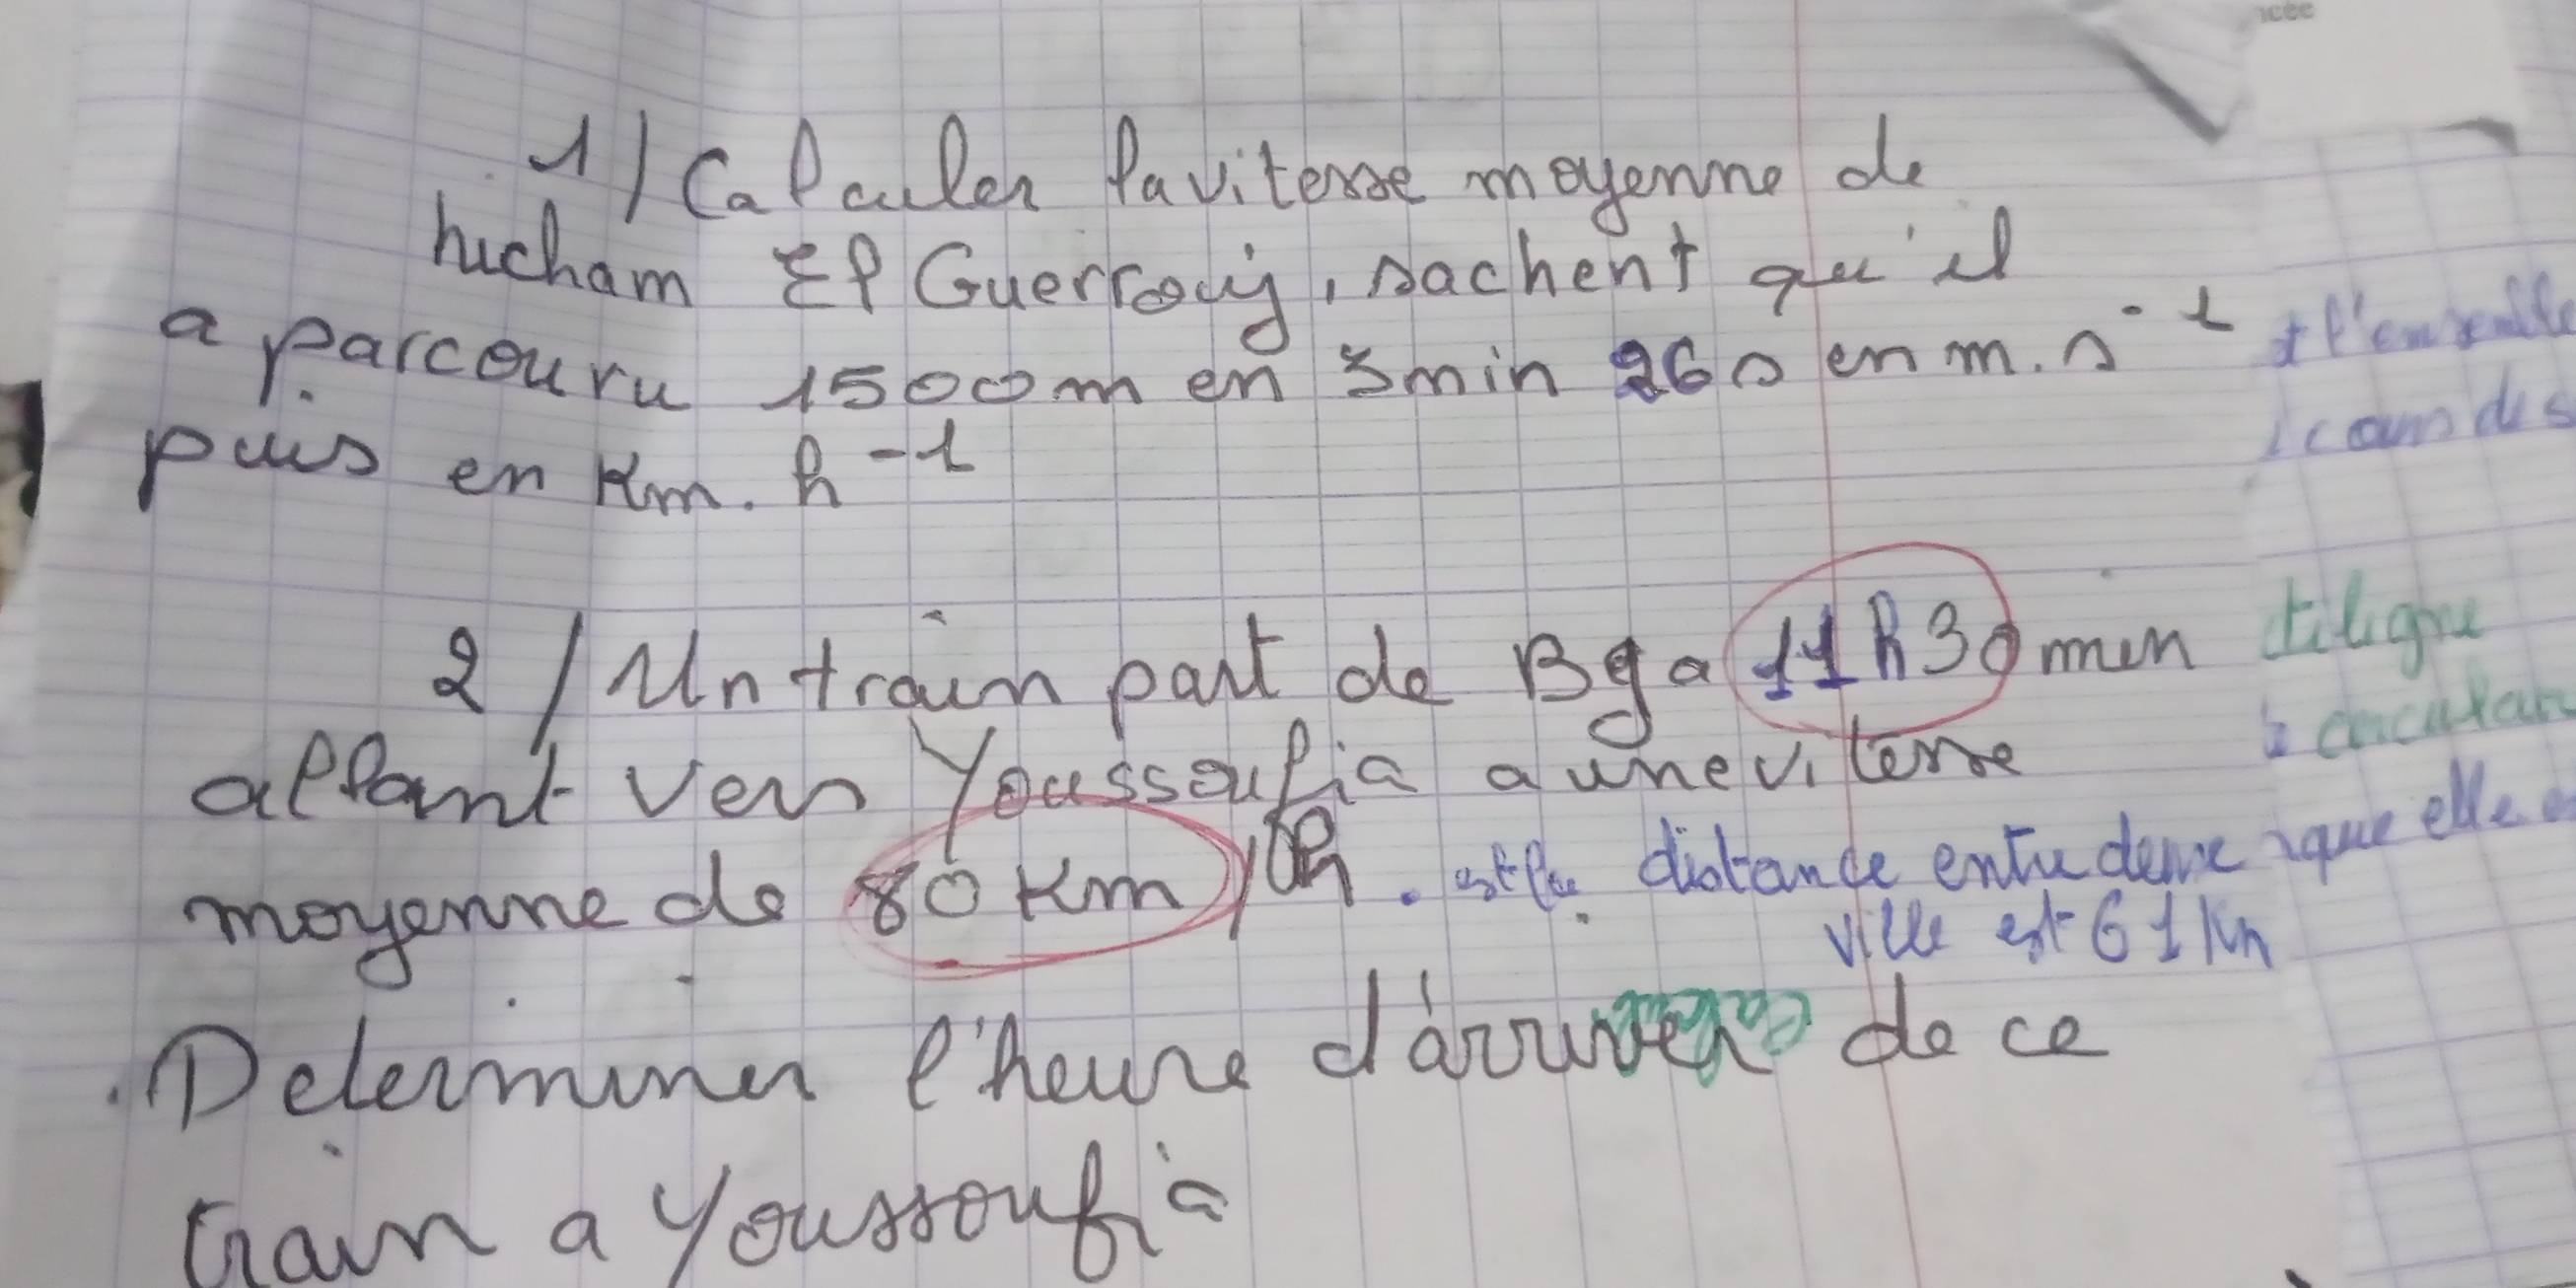 1/ Calculer la vitesse moyenne de
hicham El Guerrouj, sachent qu'il
a parcouru 1500m en 3min 26s en m.s⁻¹
puis en Km.h⁻¹
2/ Un train part de Bg a 11h30min
allant vers Youssoufia a une vitesse
moyenne de 80 Km/h. et la distance entre deuxe
ville est 61 Km
.Determiner l'heure d'arriver de ce
train a Youssoufia
l'ensemble
des
tiligne
que elle